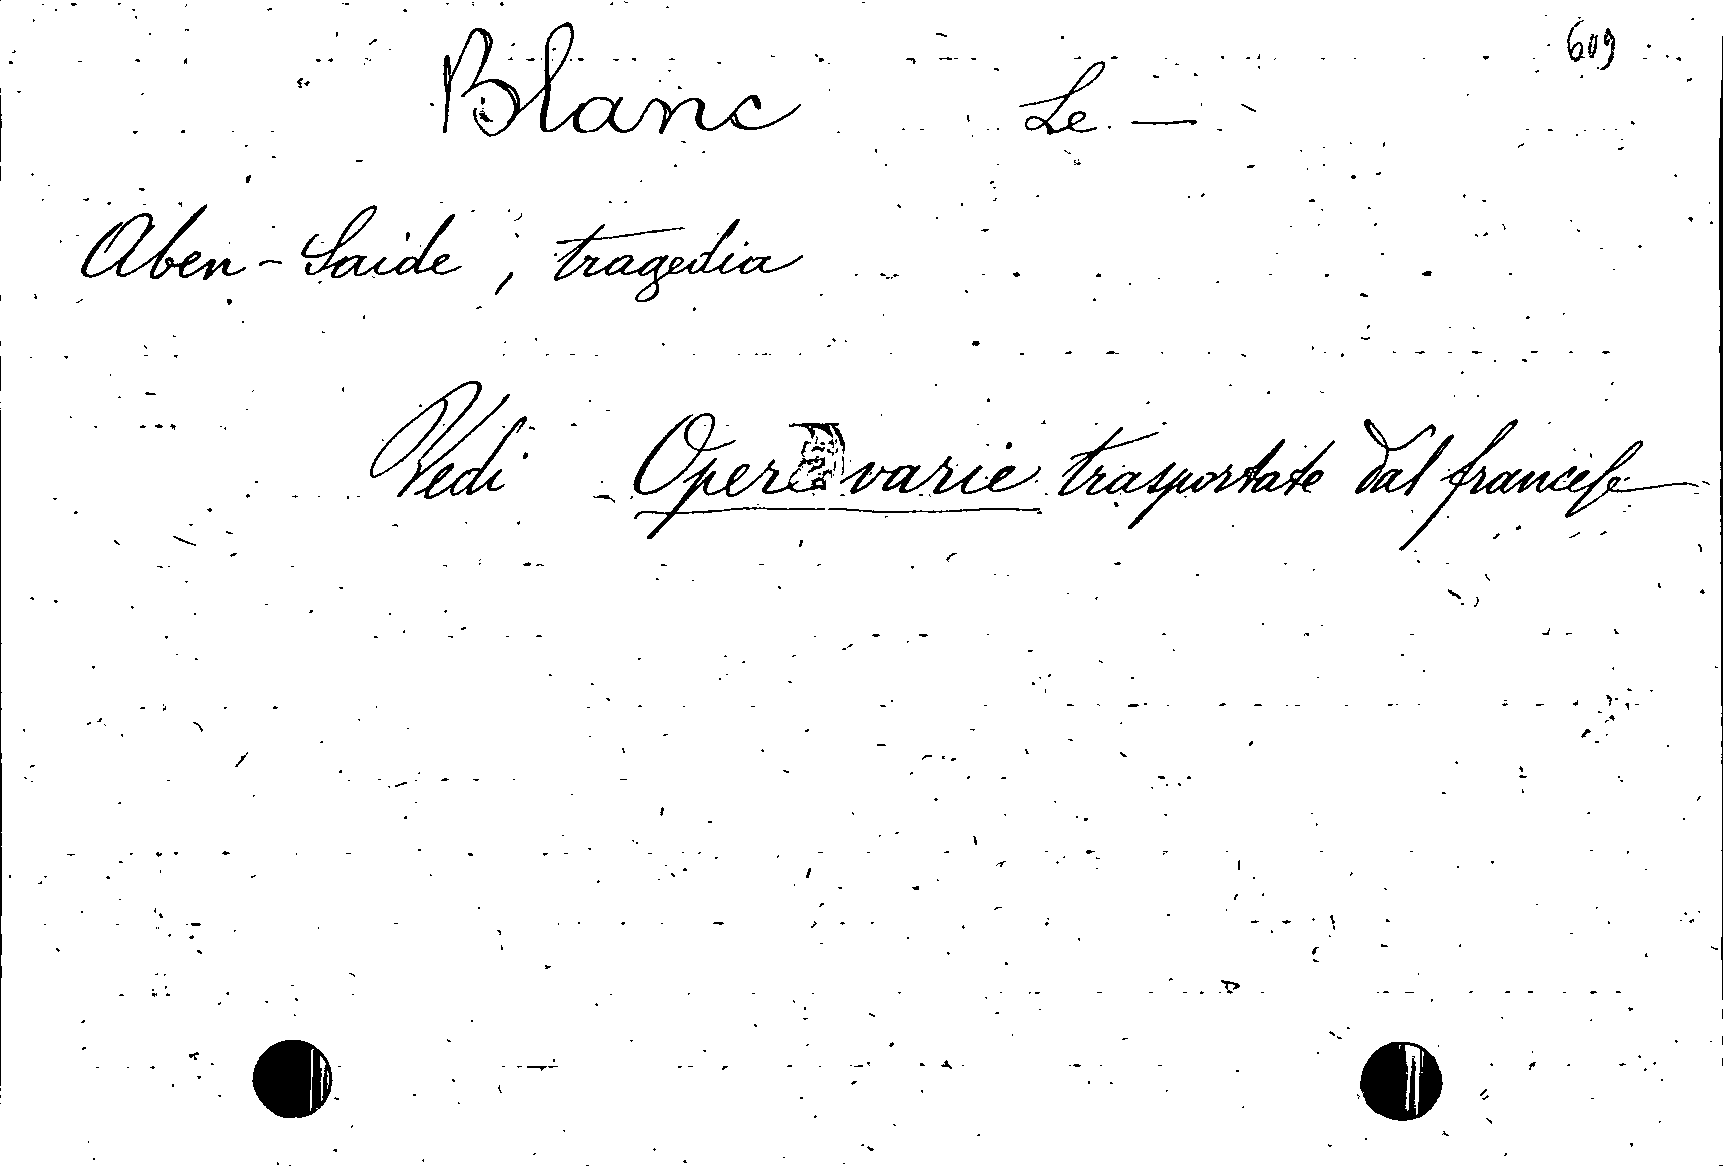 609
Blanc Le —
Aben-Saide, tragedia
Vedi Opere varie trasportate dal francese